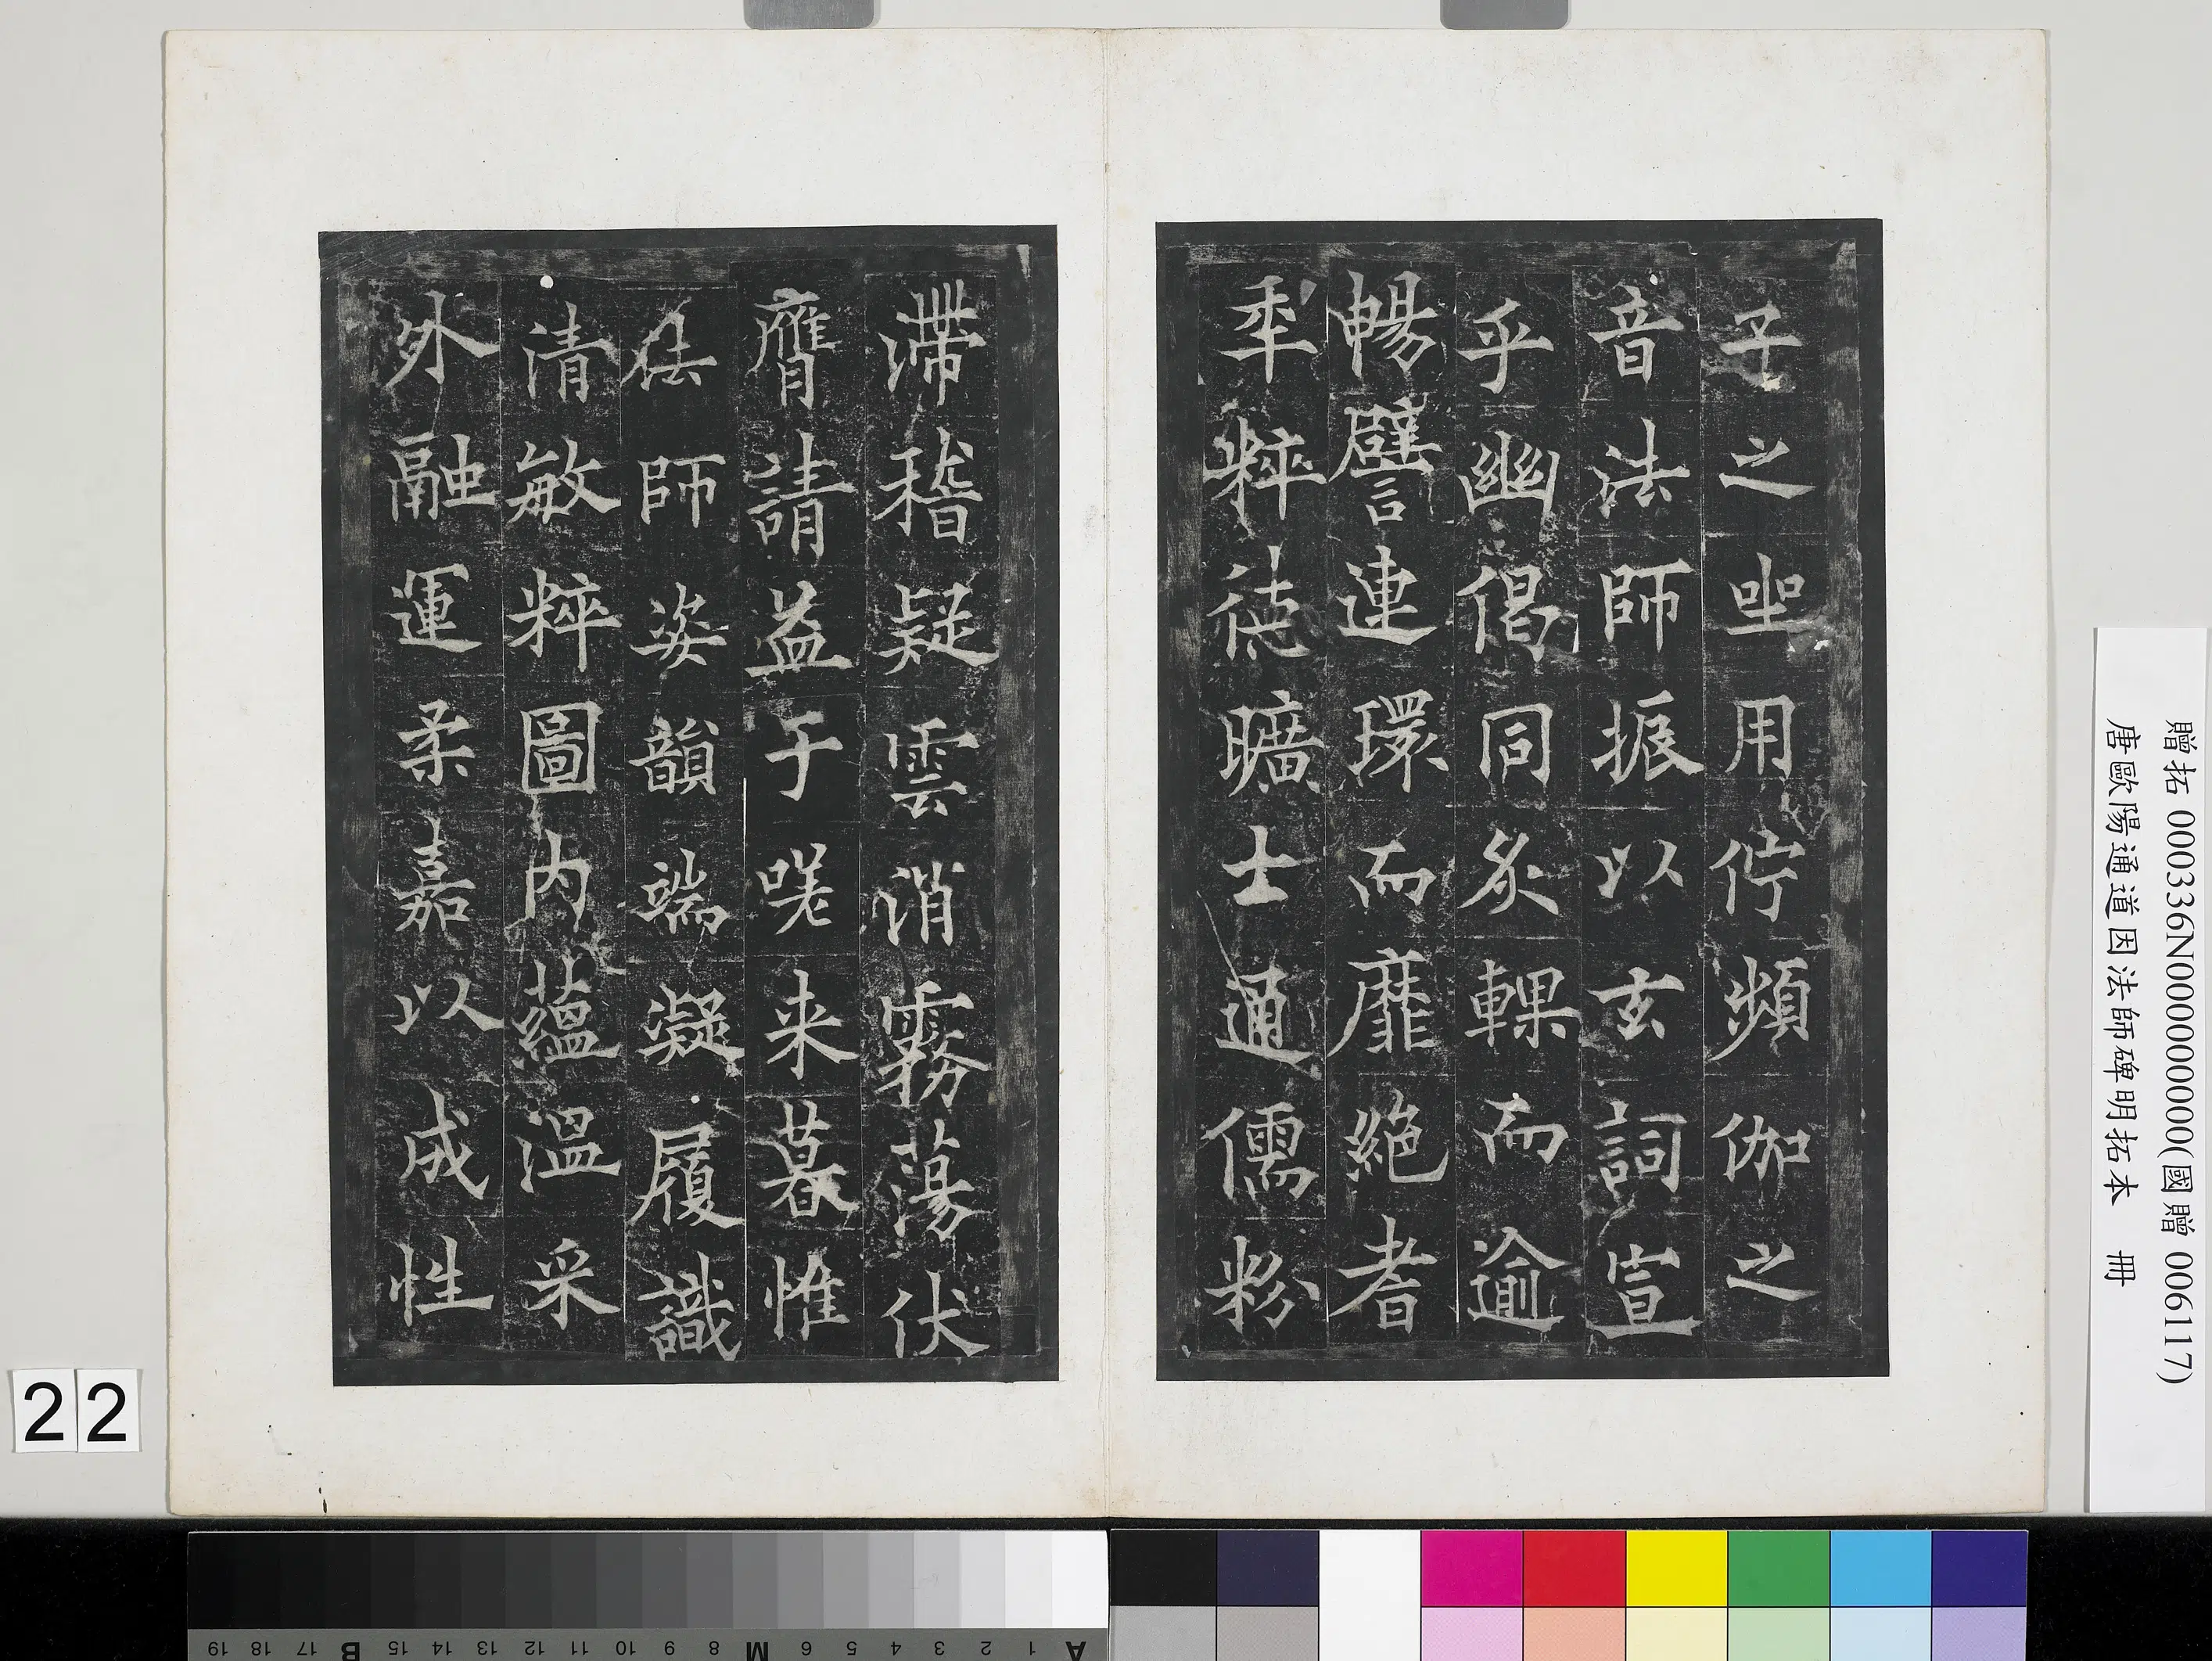 子之坐用佇頻伽之
音法師振以玄詞宣
乎幽偈同炙輠而逾
暢譬連環而靡絕者
年粹德曠士通儒粉
滯稽疑雲消霧蕩伏
膺請益于嗟来暮惟
法師姿韻端凝履識
清敏粹圖內蘊溫采
外融運柔嘉以成性
贈拓 000336N000000000(國贈 006117)
唐歐陽通道因法師碑明拓本 冊
22
A 1 2 3 4 5 6 M 8 9 10 11 12 13 14 15 B 17 18 19